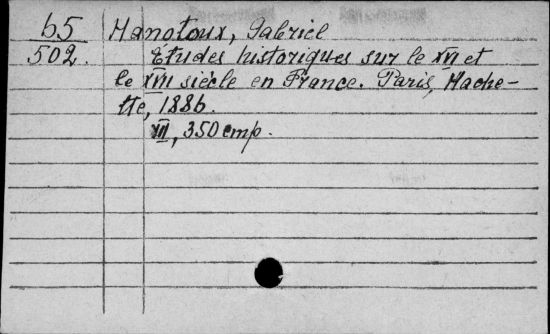 b5 Hanotoux, Gabriel
502. Études historiques sur le XVI et
le XVII siècle en France. Paris, Hache-
tte, 1886.
XII, 350 cmp.